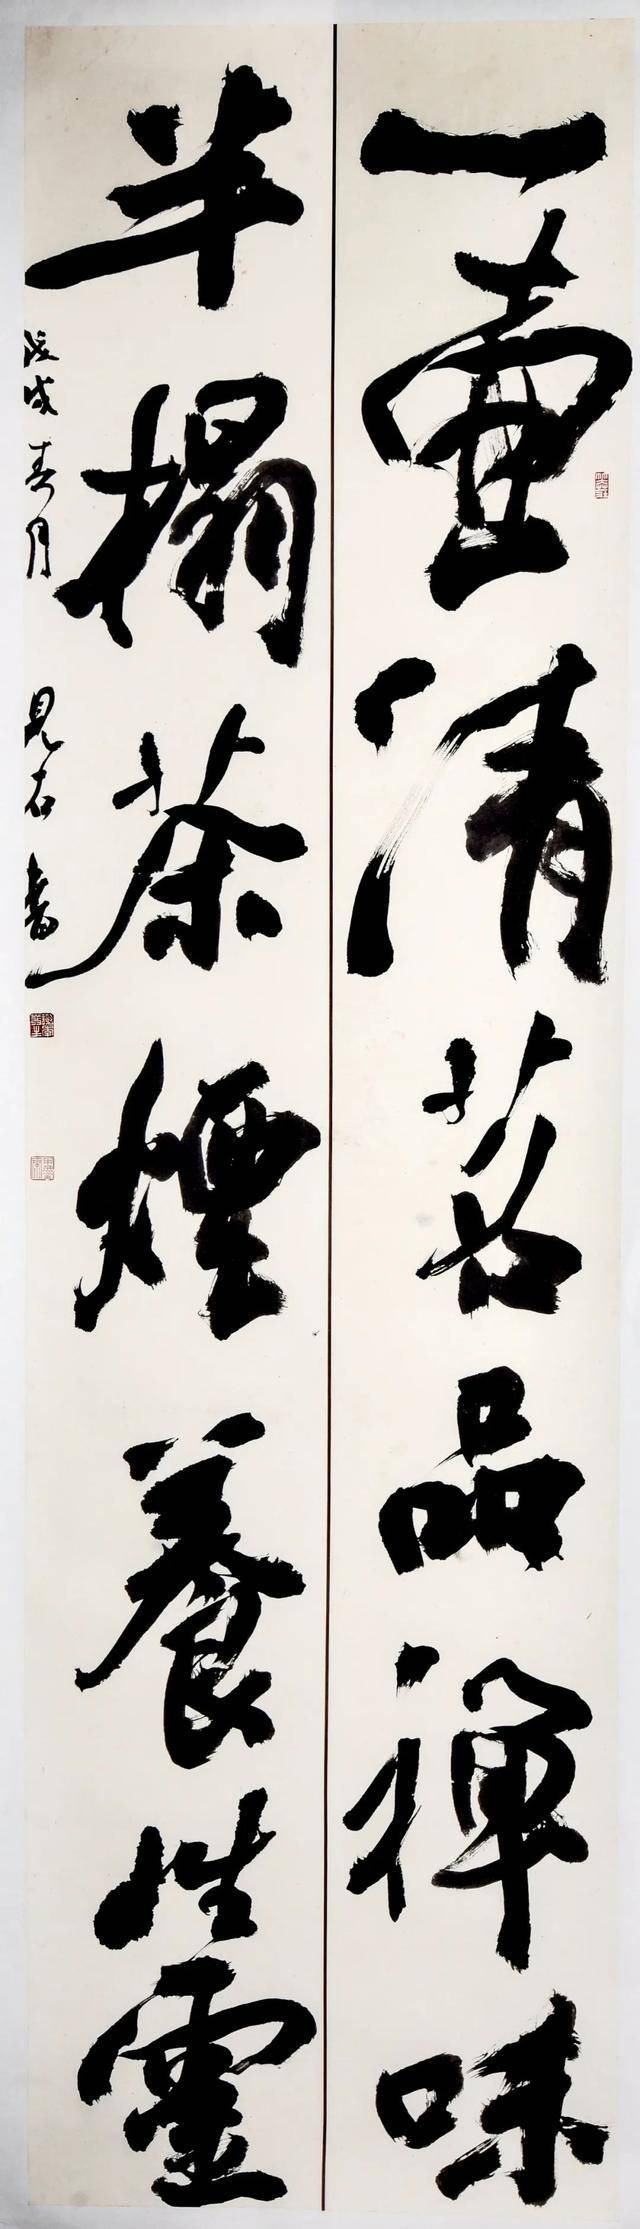 一壺清茗品禪味
半榻茶煙養性靈
戊戌春月 見石書